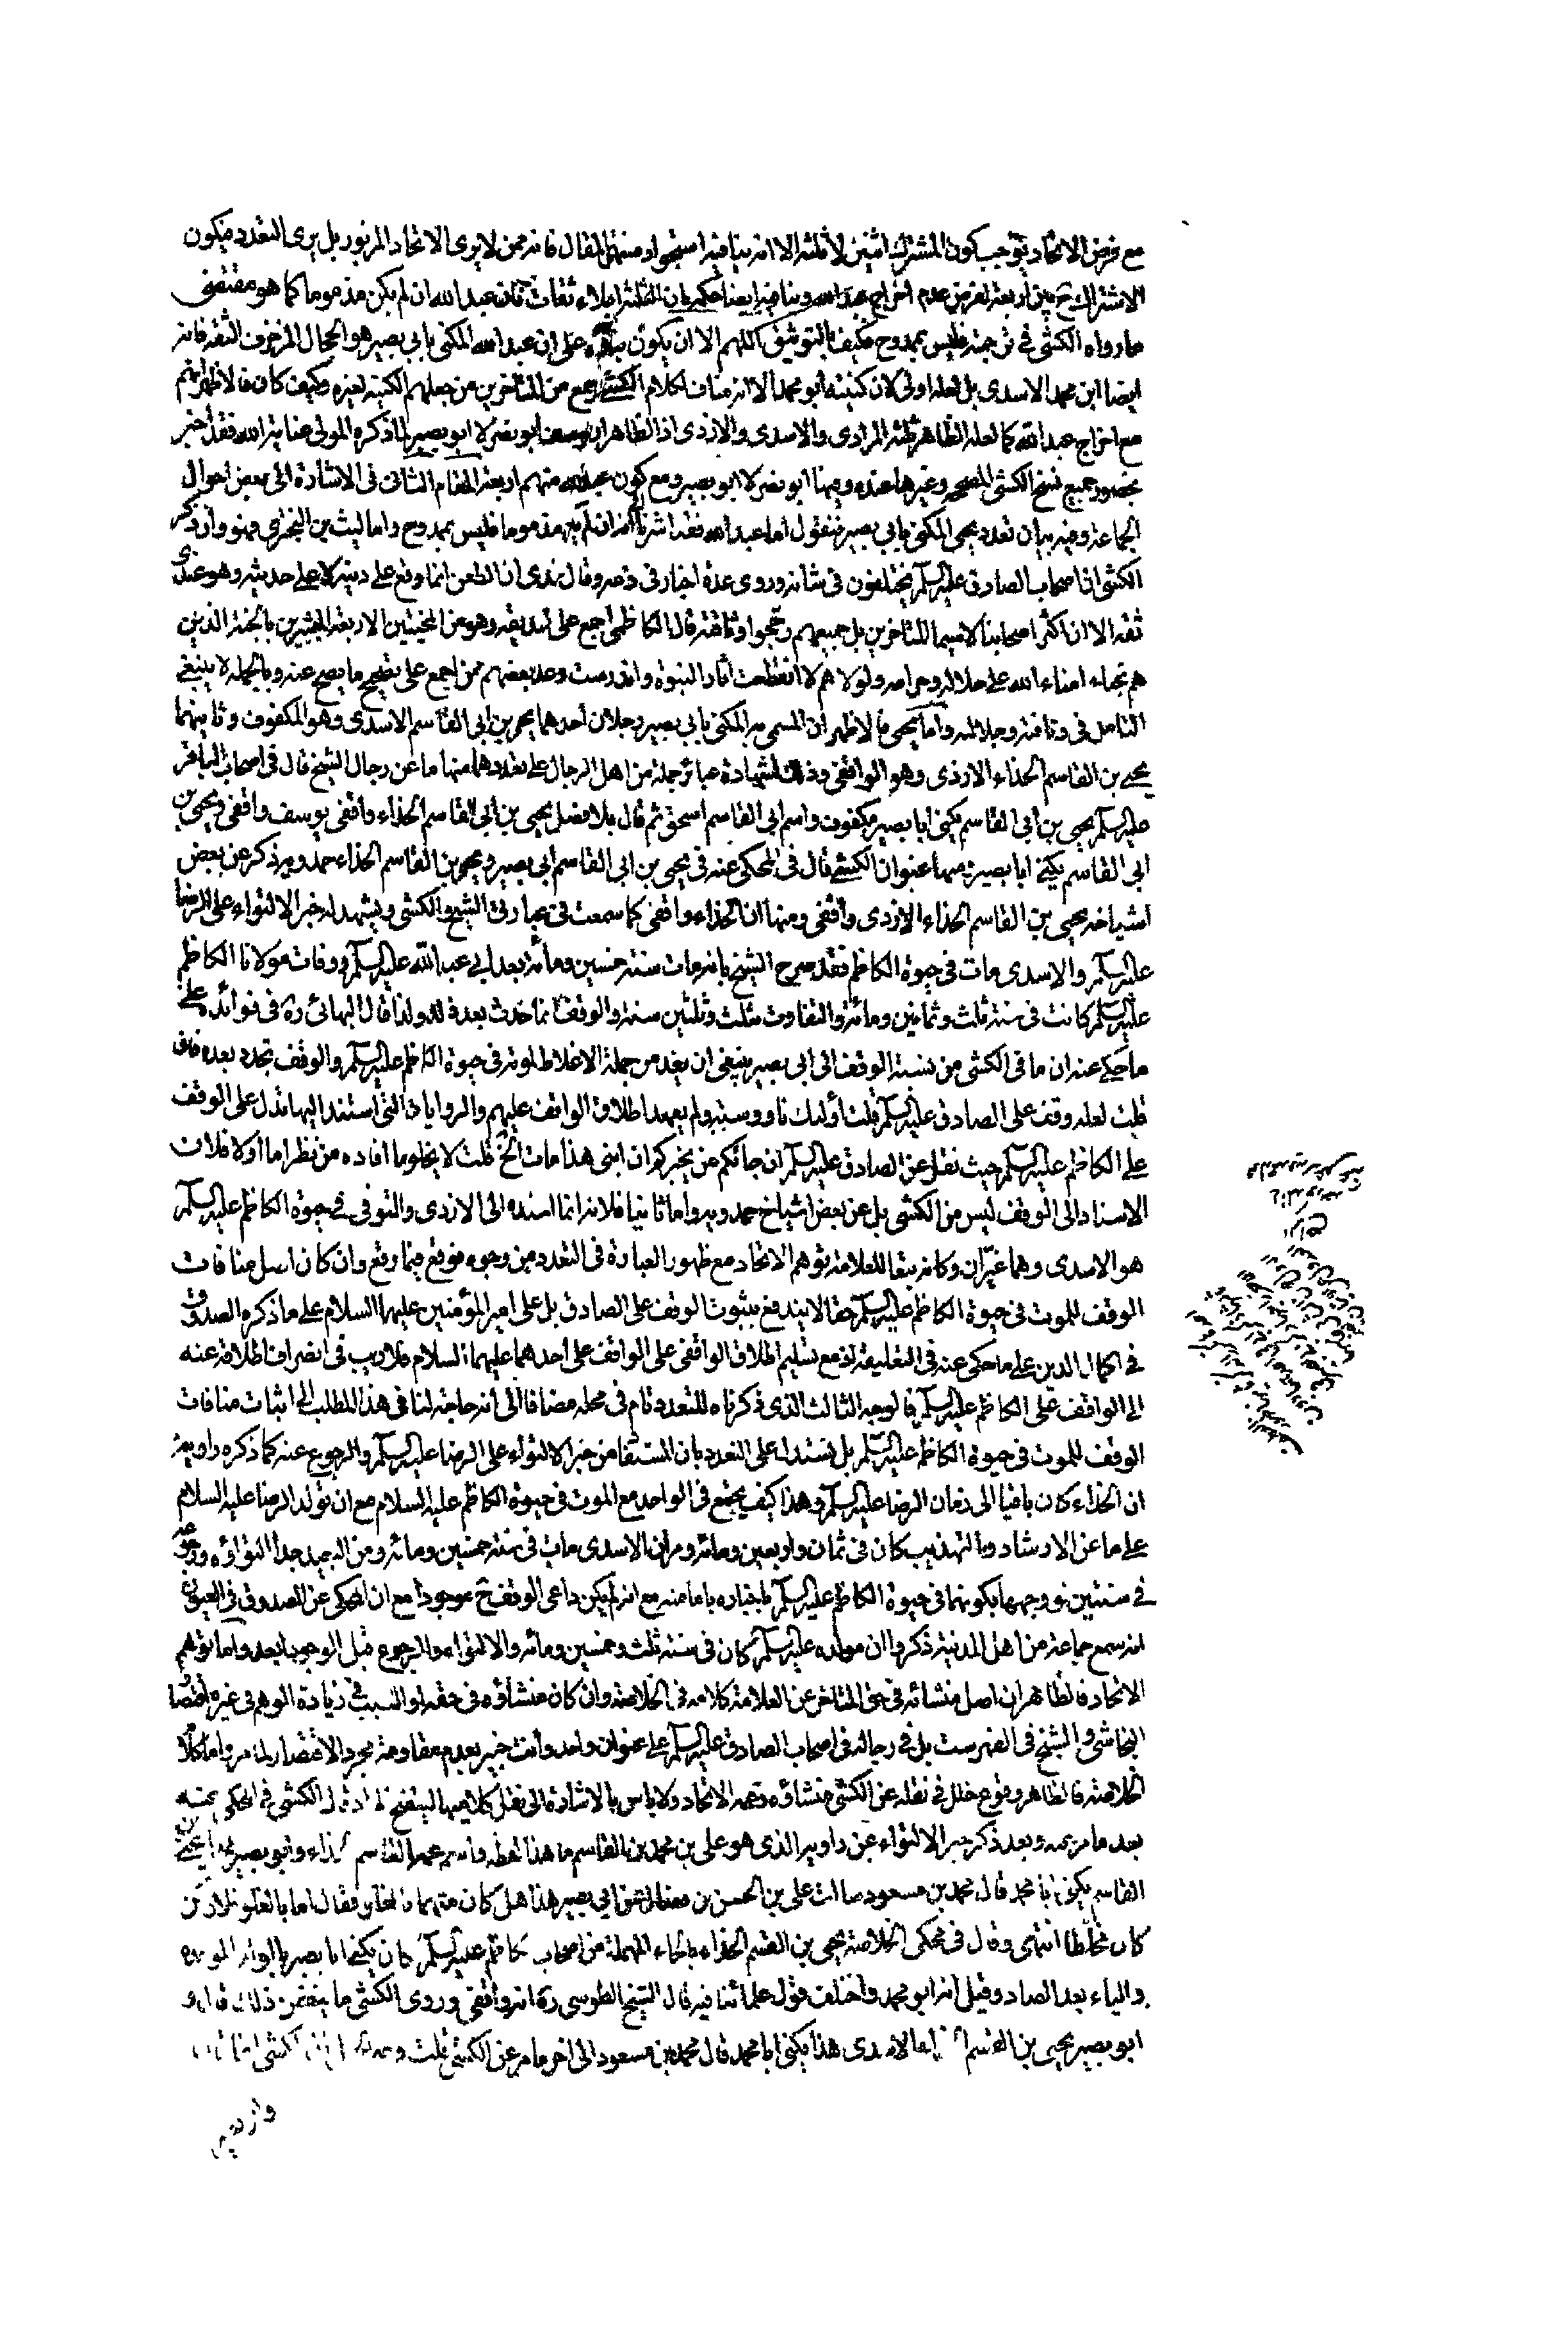 مع فرض الاتحاد يتوجب كون المشترك اثنين لا ثلثة الا انه ينافيه استجواد منتهى المقال فانه ممن لا يرى الاتحاد المزبور بل يرى التعدد فيكون
الاشتراك ح بين اربعة لفرض عدم اخراج عبد الله وينافيه ايضا حكمه بان الثلثة اجلاء ثقات فان عبد الله ان لم يكن مذموما كما هو مقتضى
ما رواه الكشى في ترجمته فليس بممدوح فكيف بالتوثيق اللهم الا ان يكون بناؤه على ان عبد الله المكنى بابي بصير هو الحجال المزخرف الثقة فانه
ايضا ابن محمد الاسدى بل لعله اولى لان كنيته ابو محمد الا انه مناف لكلام الكشى وجمع من المتأخرين من جعلهم الكنية لغيره وكيف كان فالاظهر انهم
مع اخراج عبد الله كما لعله الظاهر ثلثة المرادى والاسدى والازدى اذ الظاهر ان يوسف ابو نصر لا ابو بصير لما ذكره المولى عناية الله فقد اخبر
بحضور جميع نسخ الكشى المصححة وغيرها عنده وفيها ابو نصر لا ابو بصير ومع كون عبد الله منهم اربعة المقام الثانى في الاشارة الى بعض احوال
الجماعة وفيه بيان تعدد يحيى المكنى بابي بصير فنقول اما عبد الله فقد اشرنا انه ان لم يكن مذموما فليس بممدوح واما ليث بن البخترى فهو وان ذكر
الكشى ان اصحاب الصادق عليه السلم يختلفون في شانه وروى عدة اخبار في ذمه وقال عندى ان الطعن انما وقع على دينه لا على حديثه وهو عندى
ثقة الا ان اكثر اصحابنا لاسيما المتأخرين بل جميعهم رجحوا وثاقته قال الكاظمى اجمع على تصديقه وهو من المخبتين الاربعة المبشرين بالجنة الذين
هم نجباء امناء الله على حلاله وحرامه ولولا هم لانقطعت اثار النبوة واندرست وعد بعضهم ممن اجمع على تصحيح ما يصح عنه وبالجملة لا ينبغى
التامل في وثاقته وجلالته واما يحيى فالاظهر ان المسمى به المكنى بابي بصير رجلان احدهما يحيى بن ابى القاسم الاسدى وهو المكفوف وثانيهما
يحيى بن القاسم الحذاء الازدى وهو الواقفى وذلك لشهادة عبائر جملة من اهل الرجال على تعددهما منها ما عن رجال الشيخ قال في اصحاب الباقر
عليه السلم يحيى بن ابي القاسم يكنى ابا بصير مكفوف واسم ابى القاسم اسحق ثم قال بلا فصل يحيى بن ابى القاسم الحذاء واقفى يوسف واقفى ويحيى بن
ابى القاسم يكنى ابا بصير ومنها عنوان الكشى قال في المحكى عنه في يحيى بن ابى القاسم ابى بصير ويحيى بن القاسم الحذاء حمدويه ذكر عن بعض
اشياخه يحيى بن القاسم الحذاء الازدى واقفى ومنها ان الحذاء واقفى كما سمعت في عبارتى الشيخ والكشى ويشهد له خبر الالتواء على الرضا
عليه السلم والاسدى مات في حيوة الكاظم فقد صرح الشيخ بانه مات سنة خمسين ومائة بعد ابى عبد الله عليه السلم ووفات مولانا الكاظم
عليه السلم كانت في سنة ثلث وثمانين ومائة والتفاوت ثلث وثلثين سنة والوقف انما حدث بعده ولذا قال البهائى ره في فوائده على
ما حكى عنه ان ما في الكشى من نسبة الوقف الى ابى بصير ينبغى ان يعد من جملة الاغلاط لموته في حيوة الكاظم عليه السلم والوقف تجدد بعده فان
قلت لعله وقف على الصادق عليه السلم قلت اولئك ناووسية ولم يعهد اطلاق الواقف عليهم والروايات التى استند اليها تدل على الوقف
على الكاظم عليه السلم حيث نقل عن الصادق عليه السلم ان جائكم من يخبركم ان ابنى هذا مات الخ قلت لا يخلو ما افاده من نظر اما اولا فلان
الاسناد الى الوقف ليس من الكشى بل عن بعض اشياخ حمدويه واما ثانيا فلانه انما اسنده الى الازدى والمتوفى في حيوة الكاظم عليه السلم
هو الاسدى وهما غيران وكانه تبعا للعلامة توهم الاتحاد مع ظهور العبارة في التعدد من وجوه فوقع فيما وقع وان كان اصل منافات
الوقف للموت في حيوة الكاظم عليه السلم حقا لا يندفع بثبوت الوقف على الصادق بل على امير المؤمنين عليهما السلام على ما ذكره الصدوق
في اكمال الدين على ما حكى عنه في التعليقة اذ مع تسليم اطلاق الواقفى على الواقف على احدهما عليهما السلام فلا ريب في انصراف اطلاقه عنه
الى الواقف على الكاظم عليه السلم فالوجه الثالث الذى ذكرناه للتعدد تام في محله مضافا الى انه لا حاجة لنا في هذا المطلب الى اثبات منافات
الوقف للموت في حيوة الكاظم عليه السلم بل نستدل على التعدد بان المستفاد من خبر الالتواء على الرضا عليه السلم والرجوع عنه كما ذكره راويه
ان الحذاء كان باقيا الى زمان الرضا عليه السلم وهذا كيف يجتمع في الواحد مع الموت في حيوة الكاظم عليه السلام مع ان تولد الرضا عليه السلام
على ما عن الارشاد والتهذيب كان في ثمان واربعين ومائة ومر ان الاسدى مات في سنة خمسين ومائة ومن البعيد جدا التواؤه ورجوعه
في سنتين وتوجيهها بكونهما في حيوة الكاظم عليه السلم باخباره بامامته مع انه لم يكن داعى الوقف ح موجودا مع ان المحكى عن الصدوق في العيون
انه سمع جماعة من اهل المدينة ذكروا ان مولده عليه السلم كان في سنة ثلث وخمسين ومائة والالتواء والرجوع قبل الوجود ابعد واما توهم
الاتحاد فالظاهر ان اصل منشائه في من المتاخر عن العلامة كلامه في الخلاصة وان كان منشاؤه في حقه او السبب في زيادة الوهم في غيره اقتصار
النجاشى والشيخ في الفهرست بل في رجاله في اصحاب الصادق عليه السلم على عنوان واحد وانت خبير بعدم مقاومة مجرد الاقتصار لما مر واما كلام
الخلاصة فالظاهر وقوع خلل في نقله عن الكشى منشاؤه توهم الاتحاد ولا باس بالاشارة الى نقل كلاميهما ليتضح قال الكشى في المحكى عنه
بعد ما مر منه وبعد ذكر خبر الالتواء عن راويه الذى هو على بن محمد بن القاسم ما هذا لفظه واسم عمه القاسم الحذاء وابو بصير هذا يحيى بن
القاسم يكنى ابا محمد قال محمد بن مسعود سالت على بن الحسن بن فضال عن ابى بصير هذا هل كان متهما بالغلو فقال اما بالغلو فلا ولكن
كان مخلطا انتهى وقال في محكى الخلاصة يحيى بن القسم الحذاء بالحاء المهملة من اصحاب الكاظم عليه السلم كان يكنى ابا بصير بالباء الموحدة
والياء بعد الصاد وقيل انه ابو محمد واختلف قول علمائنا فيه قال الشيخ الطوسى ره انه واقفى وروى الكشى ما يتضمن ذلك قال و
ابو بصير يحيى بن القسم الاسدى هذا يكنى ابا محمد قال محمد بن مسعود الى اخر ما مر عن الكشى قلت